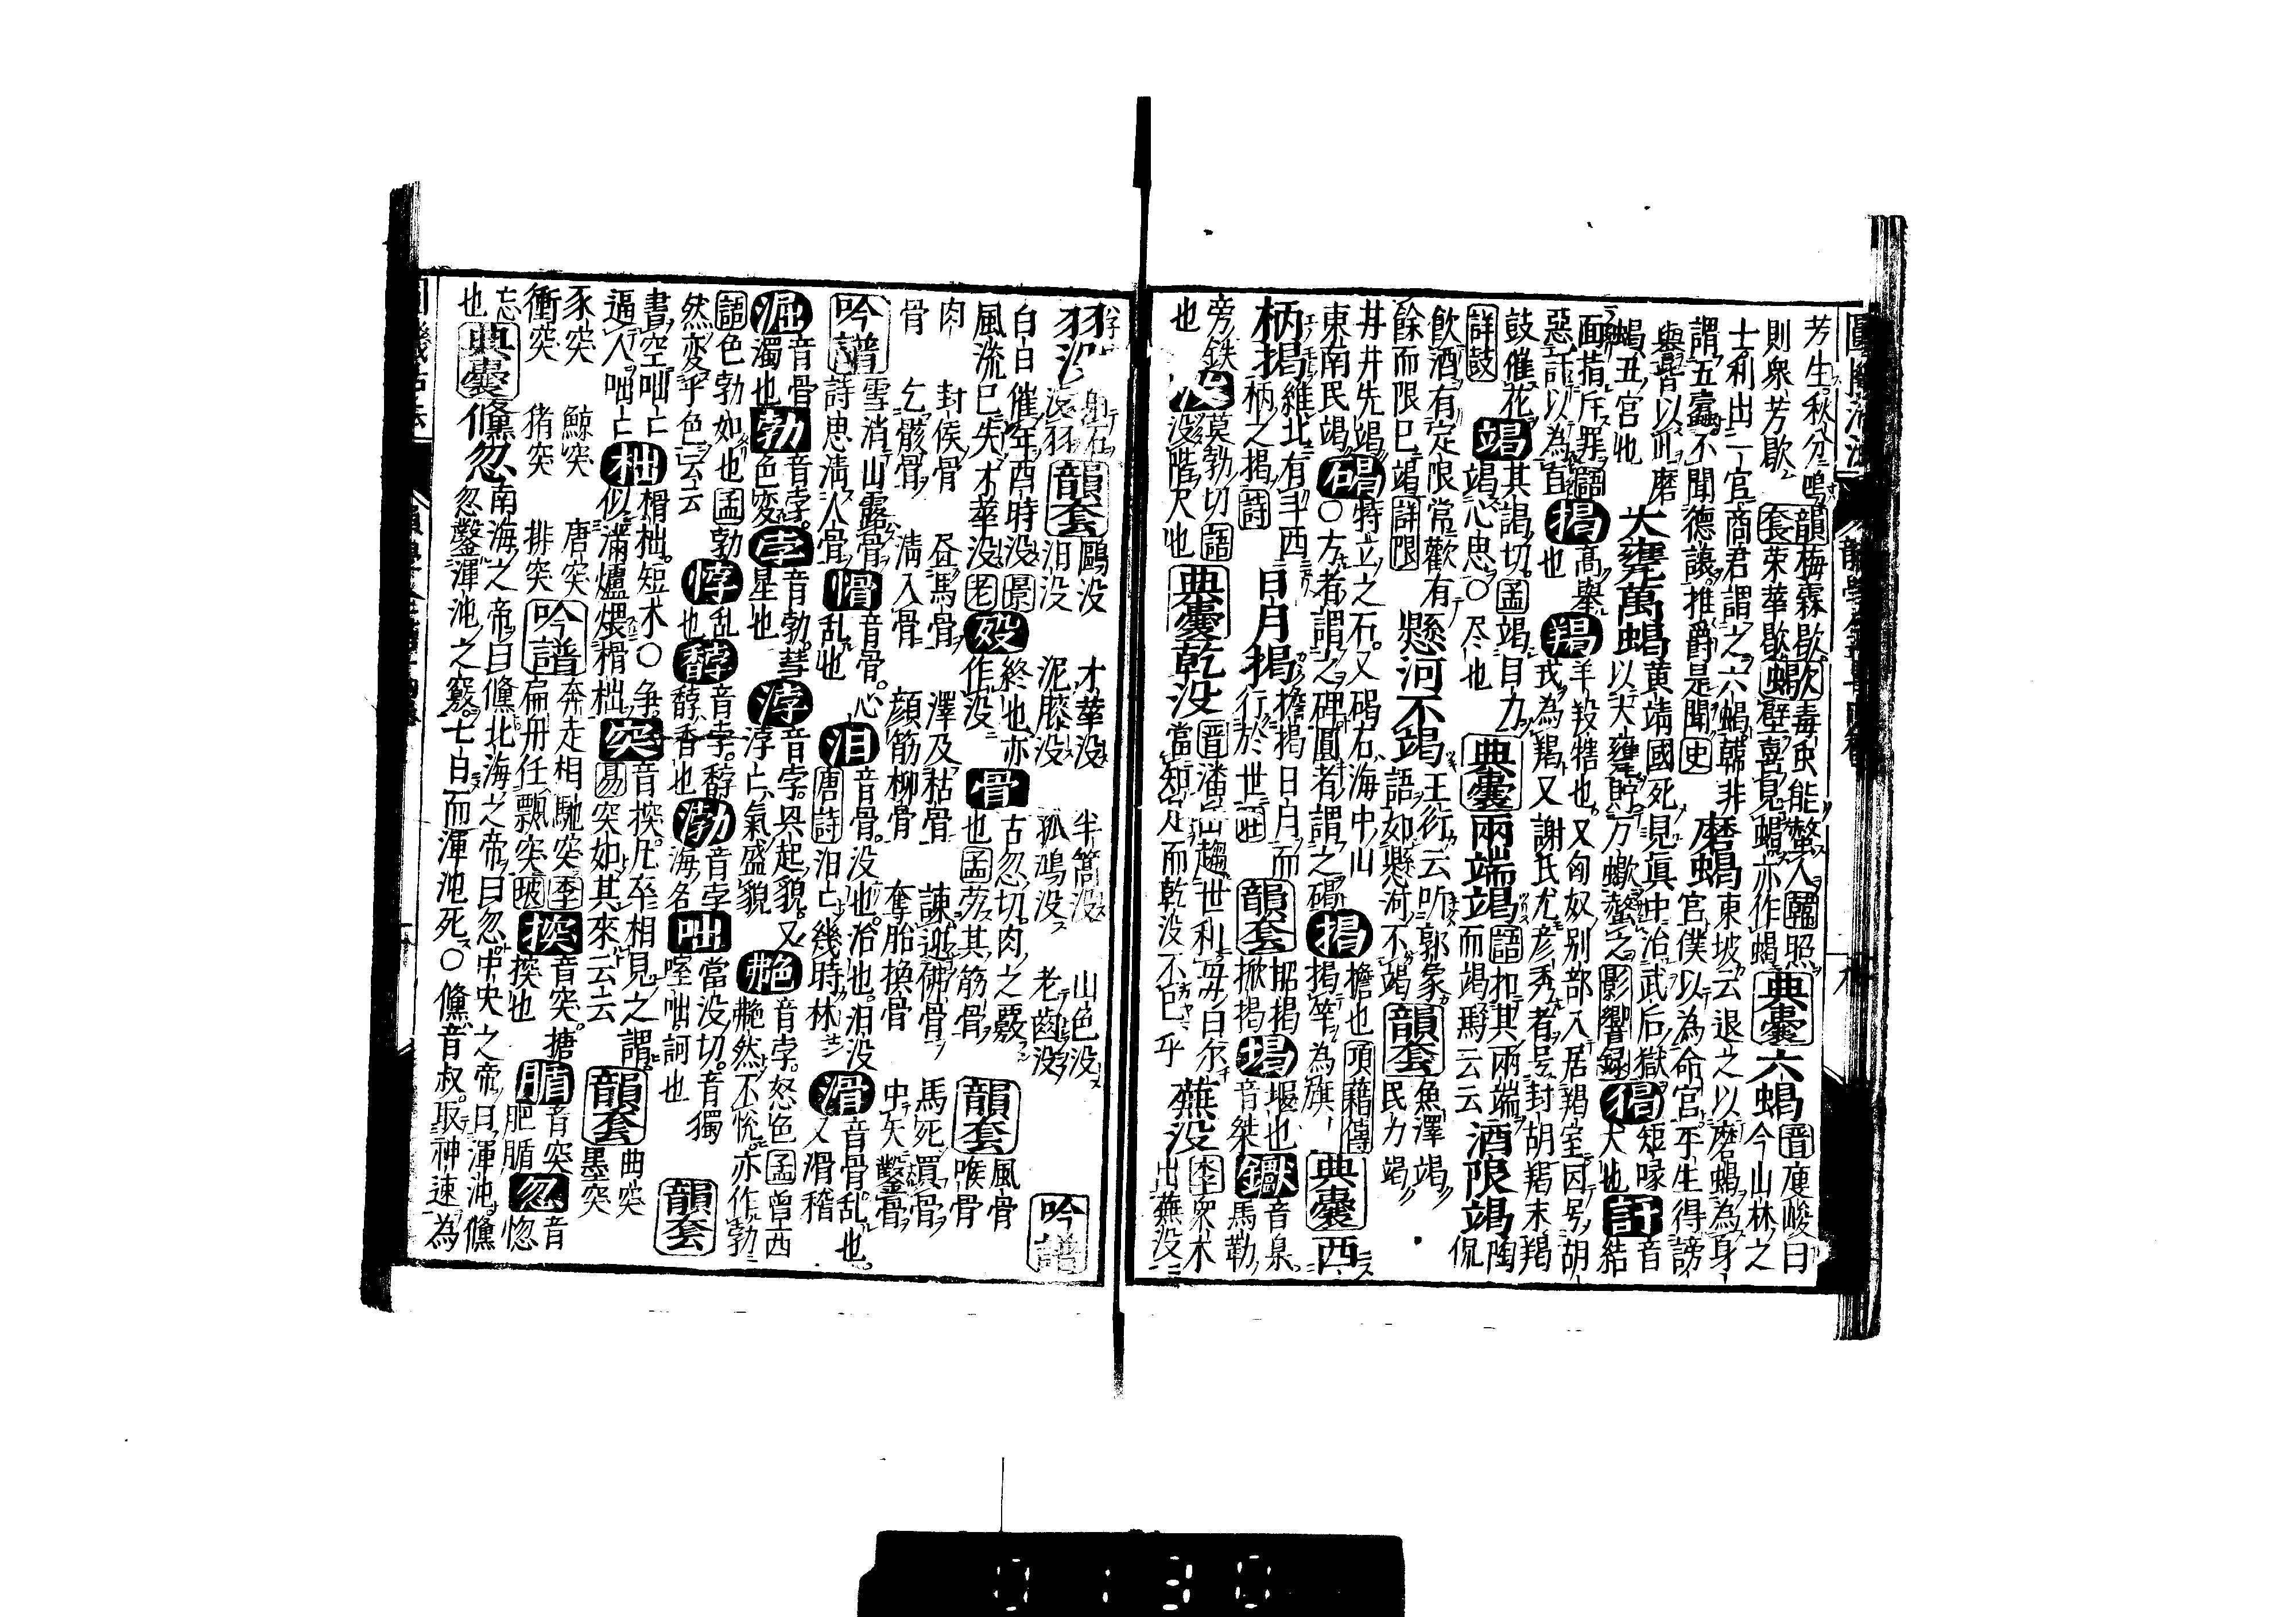 芳生秋分鳴
則衆芳歇
韻套
梅霖歇
榮華歇
蝎
毒虫能螫人韓照
壁喜見蝎亦作蝎
典嚢
六蝎
晋庾峻曰
今山林之
士利出一官商君謂之六蝎韓非
謂五蠹不聞德讓推爵是聞史
磨蝎
東坡云退之以磨蝎為身
宮僕以為命宮平生得謗
與皆以此磨
蝎丑宮也
大甕萬蝎
黄靖國死見眞中治武后獄
以大甕貯万蠍螫之影響録
猲
短喙
犬也
訐
音
結
面指斥罪語
惡訐以為直
揭
高舉
也
羯
羊羖犗也又匈奴别部入居羯室因号胡
戎為羯又謝氏尤彦秀者号封胡羯末羯
鼓催花
詳鼓
竭
其謁切孟竭目力
竭心思○尽也
典嚢
兩端竭
語扣其兩端
而竭焉云云
酒限竭
陶
侃
飲酒有定限常歡有
餘而限已竭詳限
懸河不竭
王衍云听郭象
語如懸河不竭
韻套
魚澤竭
民力竭
井井先竭
東南民竭
碣
特立之石又碣石海中山
○方者謂之碑圓者謂之碣
揭
檐也項藉傳
揭竿為旗
典嚢
西
柄揭
維北有斗西
柄之揭詩
日月揭
檐揭日月而
行於世荘
韻套
昭揭
掀揭
堨
堰也
音桀
钀
音臬
馬勒
旁鉄
也
没
莫勃切語
没階尺也
典嚢
乾没
晋潘岳趨世利母曰尓
當知足而乾没不已乎
蕪没
李衆木
出蕪没
羽没
没羽
韻套
鷗没
汨没
才華没
泥膝没
半篙没
孤鴻没
山色没
老齒没
吟譜
白日催年酉時没
風流已失才華没老
歿
終也亦
作没
骨
古忽切肉之覈
也孟劳其筋骨
韻套
風骨
喉骨
肉骨
封侯骨
乞骸骨
昼馬骨
清入骨
澤及枯骨
顔筋柳骨
諌迎佛骨
奪胎換骨
馬死買骨
中矢鑿骨
吟譜
雪消山露骨
詩思清人骨
愲
音骨心
乱也
汨
音骨没也治也汨没
唐詩汨亡幾時林
滑
音骨乱也
又滑稽
淈
音骨
濁也
勃
音孛
色変
孛
音勃彗
星也
浡
音孛㒷起貌又
浡亡氣盛貌
艴
音孛怒色孟曾西
艴然不悦亦作勃
語色勃如也孟勃
然変乎色云云
悖
乱
也
馞
音孛馞
馞香也
渤
音孛
海名
咄
當没切音獨
咥咄訶也
韻套
書空咄亡
逼人咄亡
柮
榾柮短木○争
似満爐煨榾柮
突
音揬凡卒相見之謂
易突如其來云云
韻套
曲突
墨突
豕突
衝突
鯨突
猪突
唐突
排突
吟譜
奔走相馳突李
扁舟任飄突坡
揬
音突搪
揬也
腯
音突
肥腯
忽
音
惚
忘
也
典嚢
儵忽
南海之帝曰儵北海之帝曰忽中央之帝曰渾沌儵
忽鑿渾沌之竅七日而渾沌死○儵音叔取神速為
0130